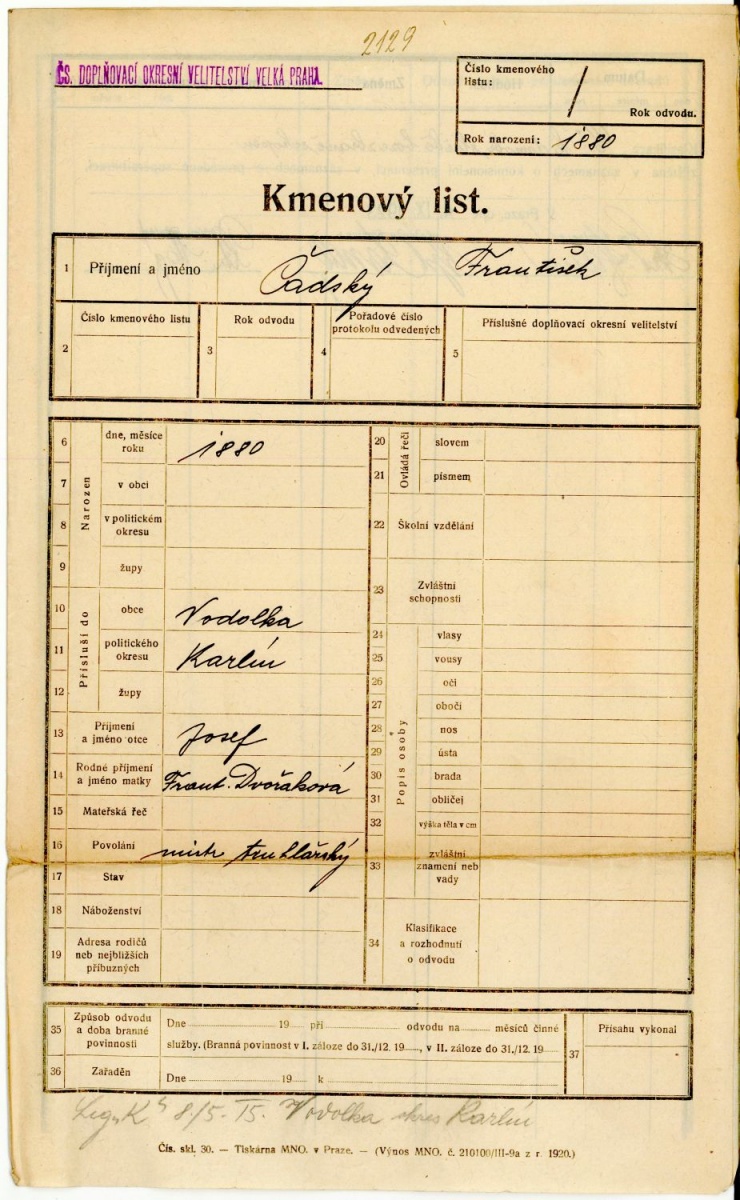 2129
ČS. DOPLŇOVACÍ OKRESNÍ VELITELSTVÍ VELKÁ PRAHA.
Číslo kmenového
listu:
/
Rok odvodu.
Rok narození: 1880
Kmenový list.
1 Příjmení a jméno Čadský František
2 Číslo kmenového listu
3 Rok odvodu
4 Pořadové číslo
protokolu odvedených
5 Příslušné doplňovací okresní velitelství
Narozen
6 dne, měsíce
roku 1880
7 v obci
8 v politickém
okresu
9 župy
Přísluší do
10 obce Vodolka
11 politického
okresu Karlín
12 župy
13 Příjmení
a jméno otce Josef
14 Rodné příjmení
a jméno matky Frant. Dvořáková
15 Mateřská řeč
16 Povolání mistr truhlářský
17 Stav
18 Náboženství
19 Adresa rodičů
neb nejbližších
příbuzných
Ovládá řeči
20 slovem
21 písmem
22 Školní vzdělání
23 Zvláštní
schopnosti
Popis osoby
24 vlasy
25 vousy
26 oči
27 obočí
28 nos
29 ústa
30 brada
31 obličej
32 výška těla v cm
33 zvláštní
znamení neb
vady
34 Klasifikace
a rozhodnutí
o odvodu
35 Způsob odvodu
a doba branné
povinnosti
Dne 19 při odvodu na měsíců činné
služby. (Branná povinnost v I. záloze do 31./12. 19 , v II. záloze do 31./12. 19
36 Zařaděn
Dne 19 k
37 Přísahu vykonal
8/5. 15. Vodolka okres Karlín
Čís. skl. 30. — Tiskárna MNO. v Praze. — (Výnos MNO. č. 210100/III-9a z r. 1920.)